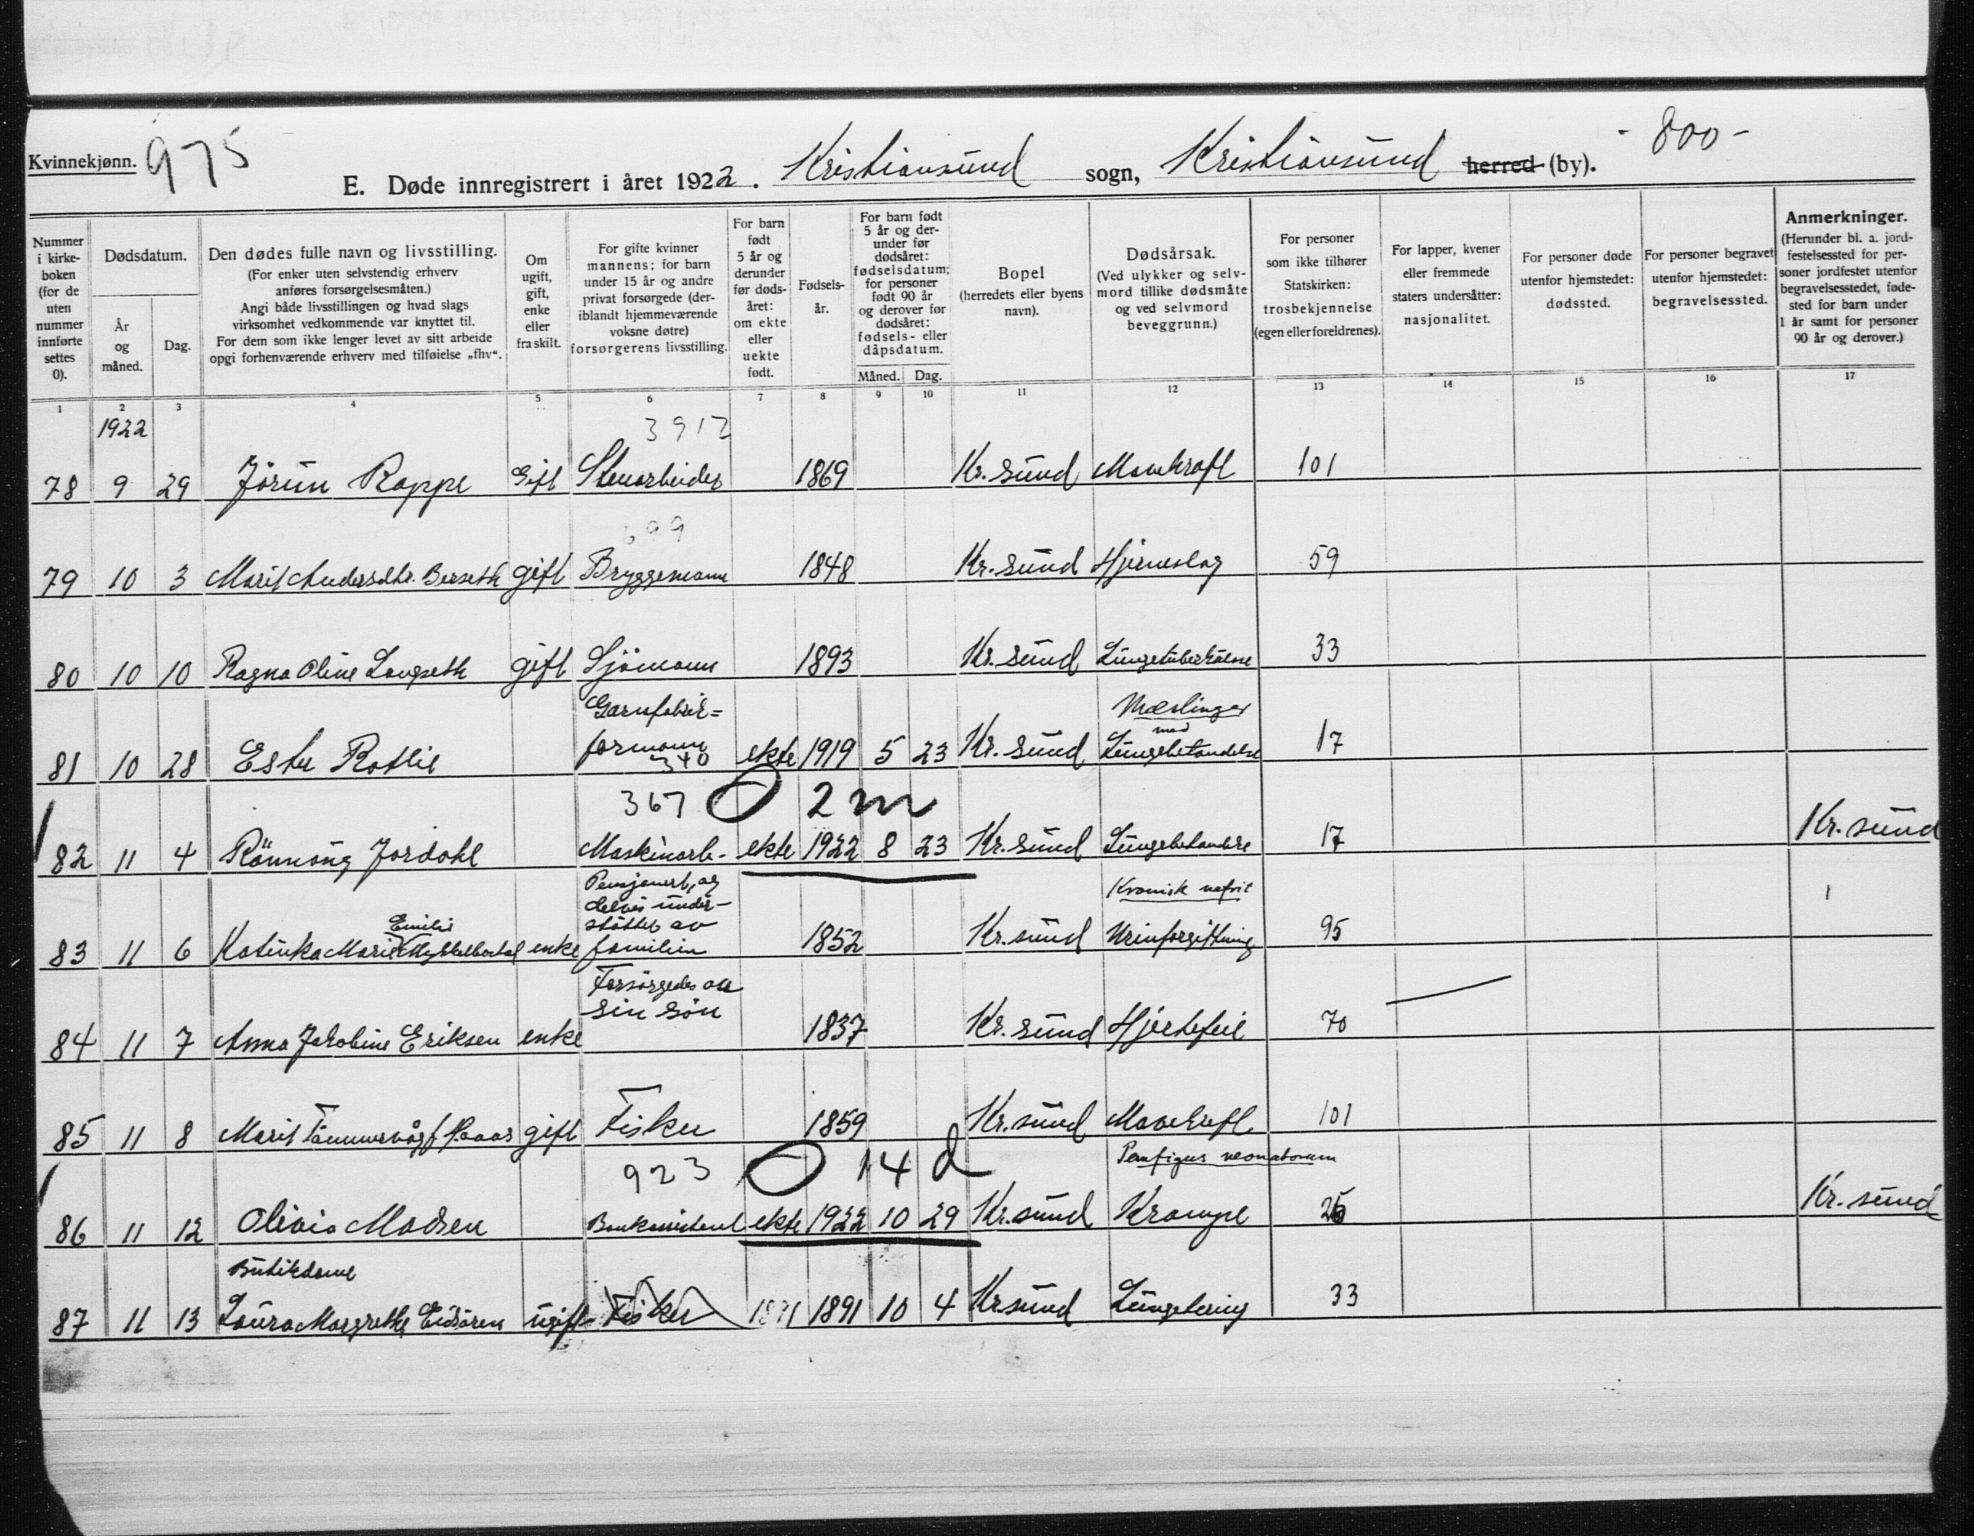 Kvinnekjønn. 975
E. Døde innregistrert i året 1922. Kristiansund sogn, Kristiansund herred (by). - 800 -
Nummer i kirkeboken (for de uten nummer innførte settes 0).
Dødsdatum.
År og måned.
Dag.
Den dødes fulle navn og livsstilling.
(For enker uten selvstendig erhverv anføres forsørgelsesmåten.)
Angi både livsstillingen og hvad slags virksomhet vedkommende var knyttet til.
For dem som ikke lenger levet av sitt arbeide opgi forhenværende erhverv med tilføielse „fhv“.
Om ugift, gift, enke eller fraskilt.
For gifte kvinner mannens; for barn under 15 år og andre privat forsørgede (deriblandt hjemmeværende voksne døtre) forsørgerens livsstilling.
For barn født 5 år og derunder før dødsåret: om ekte eller uekte født.
Fødselsår.
For barn født 5 år og derunder før dødsåret: fødselsdatum; for personer født 90 år og derover før dødsåret: fødsels- eller dåpsdatum.
Måned. Dag.
Bopel
(herredets eller byens navn).
Dødsårsak.
(Ved ulykker og selvmord tillike dødsmåte og ved selvmord beveggrunn.)
For personer som ikke tilhører Statskirken: trosbekjennelse (egen eller foreldrenes).
For lapper, kvener eller fremmede staters undersåtter: nasjonalitet.
For personer døde utenfor hjemstedet: dødssted.
For personer begravet utenfor hjemstedet: begravelsessted.
Anmerkninger.
(Herunder bl. a. jordfestelsessted for personer jordfestet utenfor begravelsesstedet, fødested for barn under 1 år samt for personer 90 år og derover.)
1 2 3 4 5 6 7 8 9 10 11 12 13 14 15 16 17
1922
3912
78 9 29 Jörun Rappe Gift Stenarbeider 1869 Kr. sund Mavekraft 101
99
79 10 3 Marit Andersdtr. Berseth gift Bryggemann 1848 Kr. sund Hjerneslag 59
80 10 10 Ragna Oline Langseth gift Sjömann 1893 Kr. sund Lungetuberkulose 33
Garnfabrik=
Mæslinger
med
81 10 28 Ester Rotlie formann ekte 1919 5 23 Kr. sund Lungebetendelse 17
340
367 O 2 m
82 11 4 Rönnaug Jordahl Maskinarb. ekte 1922 8 23 Kr. sund Lungebetendelse 17 Kr. sund
Pensjonert, og
delvis under-
støttet av
Kronisk nefrit
Emilie
83 11 6 Katinka Marie Myklebostad enke familien 1852 Kr. sund Urinforgiftning 95
Forsörgedes av
sin sön
84 11 7 Anna Jakobine Eriksen enke 1837 Kr. sund Hjertefeil 70
85 11 8 Marit gift Fisker 1859 Kr. sund Mavekreft 101
923 O 14 d
Pemfigus neonatorum
86 11 12 Olivia Madsen Bankassistent ekte 1922 10 29 Kr. sund Krampe Kr. sund
Butikdame
87 11 13 Laura Margrethe Eidsören ugift Fisker 1891 1891 10 4 Kr sund Lungetæring 33